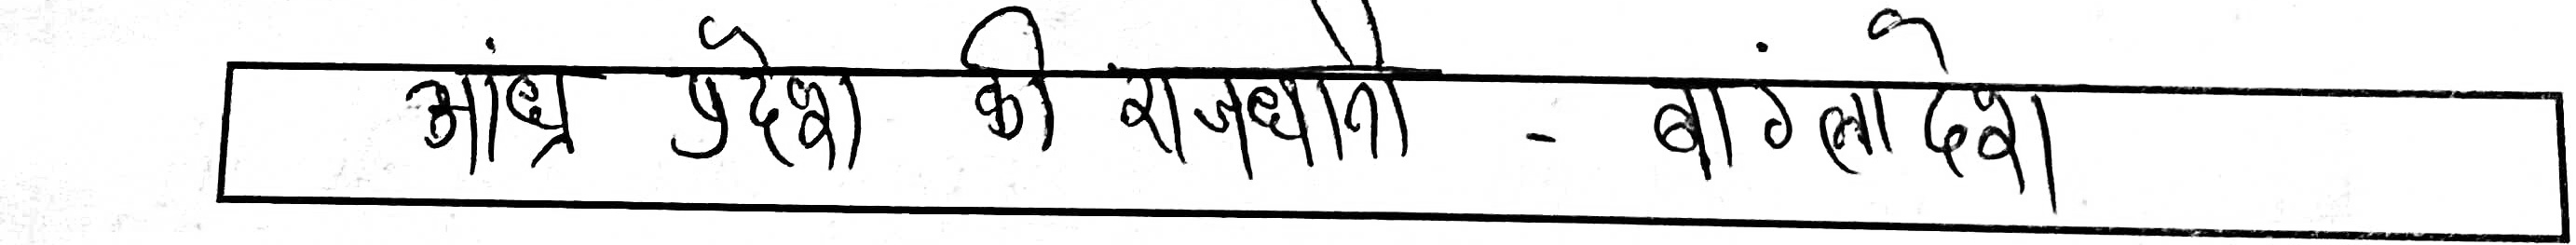 आंध्र प्रदेश की राजधानी - बांग्लादेश